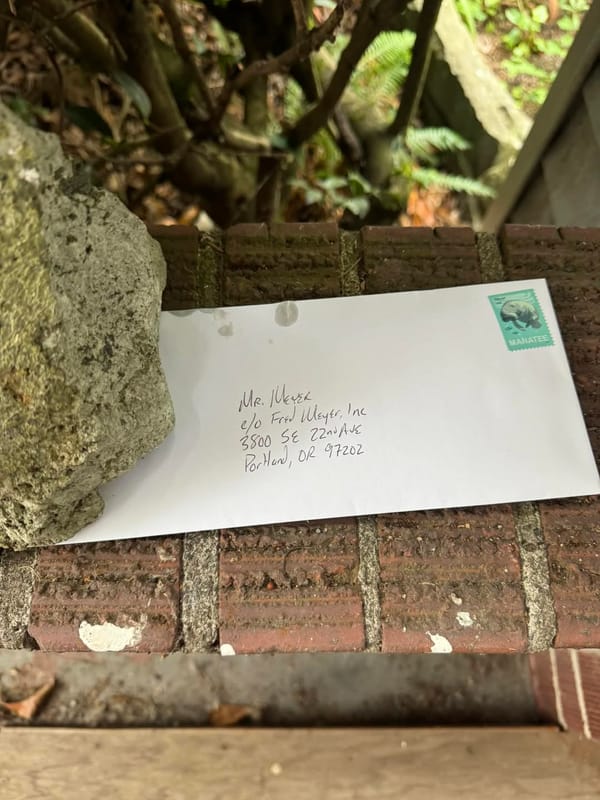 MANATEE
Mr. Meyer
c/o Fred Meyer, Inc
3800 SE 22nd Ave
Portland, OR 97202